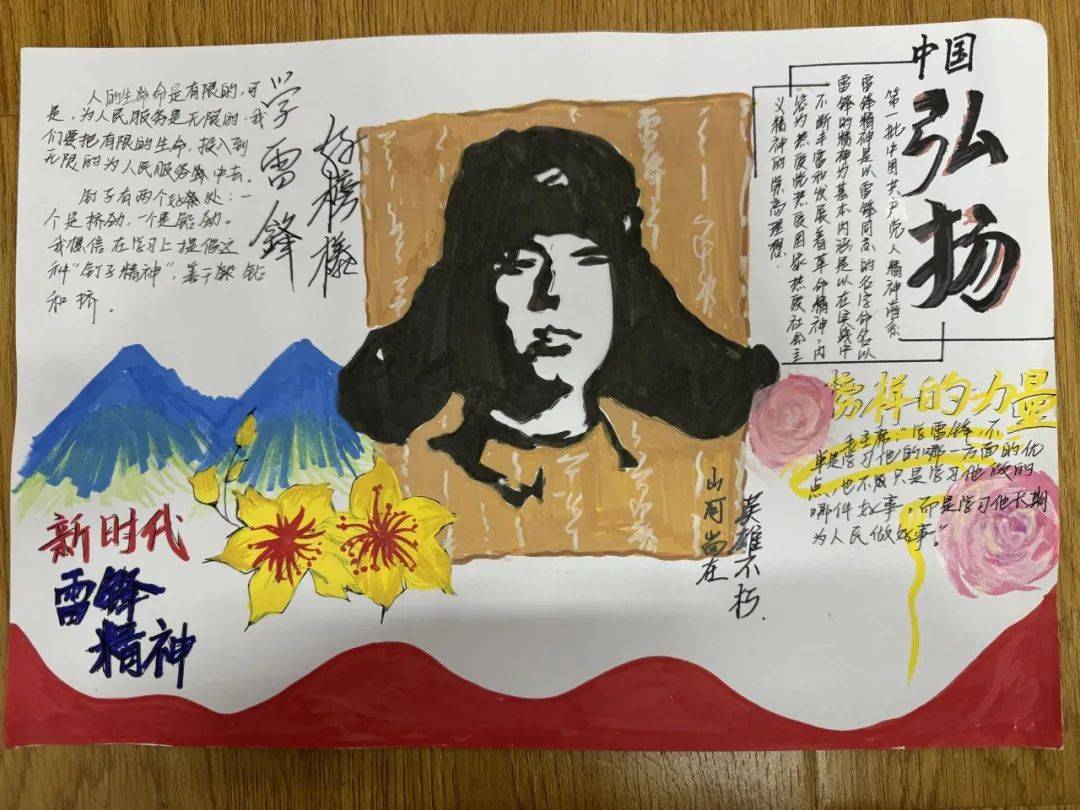 人的生命是有限的,可
是,为人民服务是无限的,我
们要把有限的生命,投入到
无限的为人民服务
中去。
钉子有两个好处:一
个是挤劲,一个是钻劲。
我
在学习上
提倡这
种"钉子精神",善于
钻
和挤。
学雷锋
好榜樣
中国
弘扬
第一批中国共产党人精神谱系
雷锋精神是以雷锋同志的名字命名以
雷锋的精神为基本内涵是以在实践中
不断丰富和发展着革命精神,内
容为热爱党热爱国家热爱社会主
义精神的崇高理想.
榜样的力量
毛主席:"学雷锋不
单是学习他的哪一方面的优
点,也不
只是学习他做的
哪件好事,而是学习他长期
为人民做好事。"
山河尚在
英雄不朽.
新时代
雷锋
精神